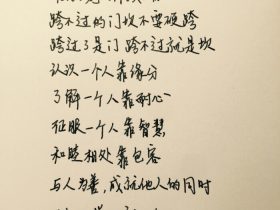 跨不过的门坎不要硬跨
跨过了是门 跨不过就是坎
认识一个人靠缘分
了解一个人靠耐心
征服一个人靠智慧
和睦相处靠包容
与人为善,成就他人的同时